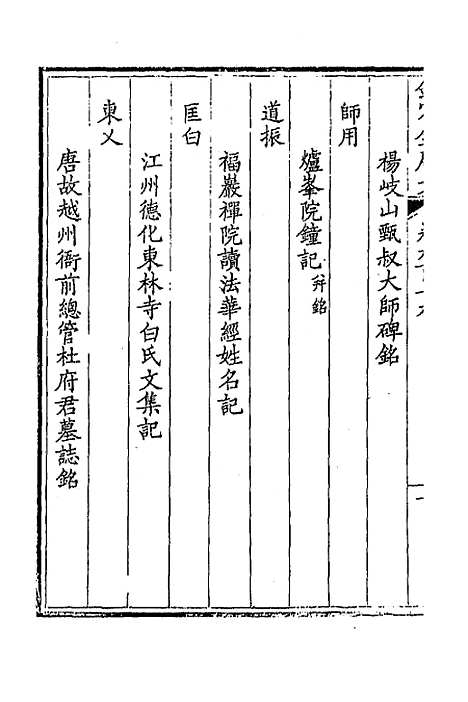 楊岐山甄叔大師碑銘
師用
爐峯院鐘記 并銘
道振
福嚴禪院讀法華經姓名記
匡白
江州德化東林寺白氏文集記
東乂
唐故越州衙前總管杜府君墓誌銘